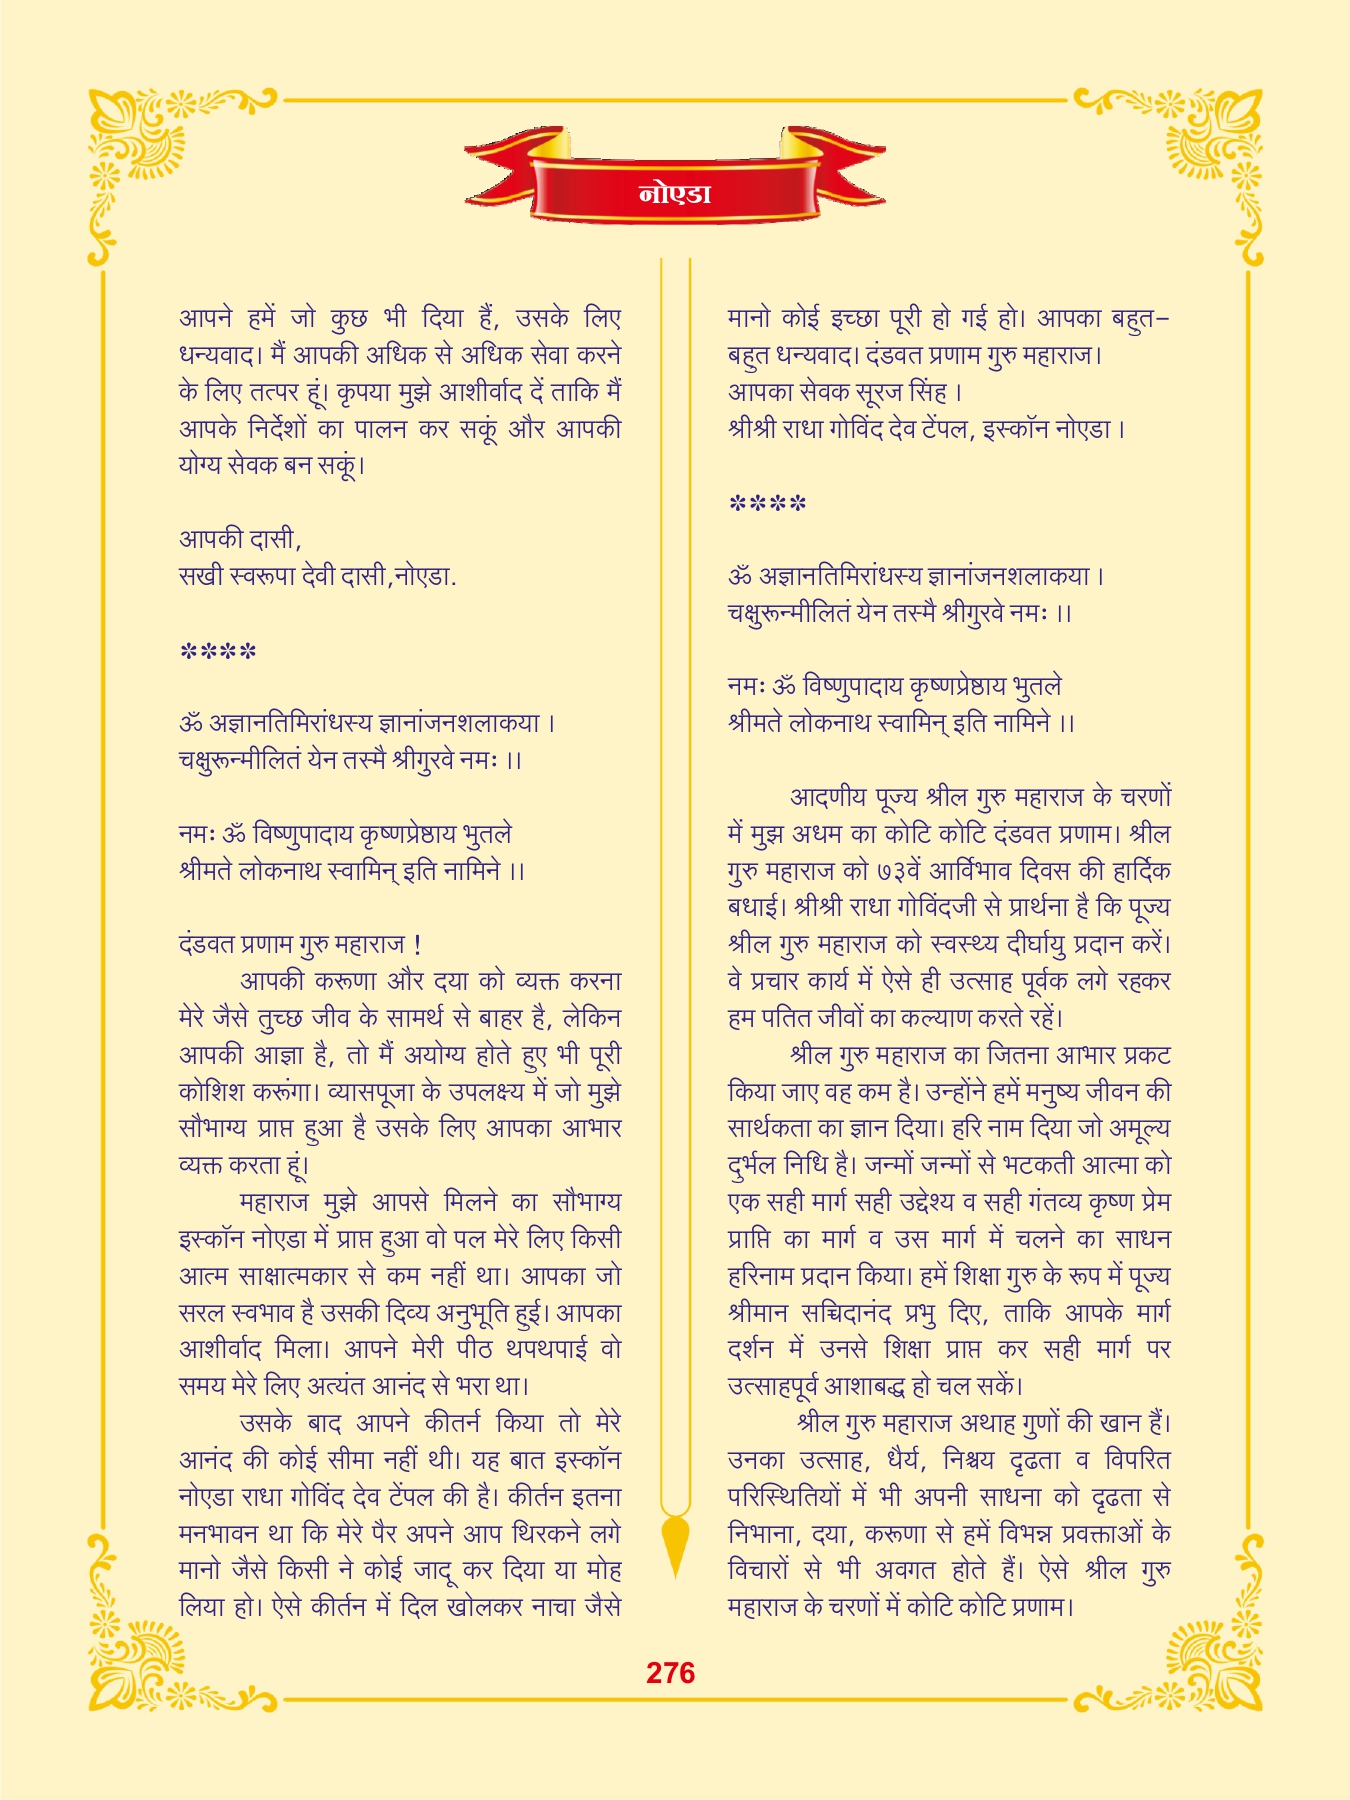 नोएडा
आपने हमें जो कुछ भी दिया हैं, उसके लिए
धन्यवाद। मैं आपकी अधिक से अधिक सेवा करने
के लिए तत्पर हूं। कृपया मुझे आशीर्वाद दें ताकि मैं
आपके निर्देशों का पालन कर सकूं और आपकी
योग्य सेवक बन सकूं।
आपकी दासी,
सखी स्वरूपा देवी दासी,नोएडा.
****
ॐ अज्ञानतिमिरांधस्य ज्ञानांजनशलाकया ।
चक्षुरून्मीलितं येन तस्मै श्रीगुरवे नमः ।।
नमः ॐ विष्णुपादाय कृष्णप्रेष्ठाय भुतले
श्रीमते लोकनाथ स्वामिन् इति नामिने ।।
दंडवत प्रणाम गुरु महाराज !
आपकी करूणा और दया को व्यक्त करना
मेरे जैसे तुच्छ जीव के सामर्थ से बाहर है, लेकिन
आपकी आज्ञा है, तो मैं अयोग्य होते हुए भी पूरी
कोशिश करूंगा। व्यासपूजा के उपलक्ष्य में जो मुझे
सौभाग्य प्राप्त हुआ है उसके लिए आपका आभार
व्यक्त करता हूं।
महाराज मुझे आपसे मिलने का सौभाग्य
इस्कॉन नोएडा में प्राप्त हुआ वो पल मेरे लिए किसी
आत्म साक्षात्मकार से कम नहीं था। आपका जो
सरल स्वभाव है उसकी दिव्य अनुभूति हुई। आपका
आशीर्वाद मिला। आपने मेरी पीठ थपथपाई वो
समय मेरे लिए अत्यंत आनंद से भरा था।
उसके बाद आपने कीतर्न किया तो मेरे
आनंद की कोई सीमा नहीं थी। यह बात इस्कॉन
नोएडा राधा गोविंद देव टेंपल की है। कीर्तन इतना
मनभावन था कि मेरे पैर अपने आप थिरकने लगे
मानो जैसे किसी ने कोई जादू कर दिया या मोह
लिया हो। ऐसे कीर्तन में दिल खोलकर नाचा जैसे
मानो कोई इच्छा पूरी हो गई हो। आपका बहुत–
बहुत धन्यवाद। दंडवत प्रणाम गुरु महाराज।
आपका सेवक सूरज सिंह ।
श्रीश्री राधा गोविंद देव टेंपल, इस्कॉन नोएडा ।
****
ॐ अज्ञानतिमिरांधस्य ज्ञानांजनशलाकया ।
चक्षुरून्मीलितं येन तस्मै श्रीगुरवे नमः ।।
नमः ॐ विष्णुपादाय कृष्णप्रेष्ठाय भुतले
श्रीमते लोकनाथ स्वामिन् इति नामिने ।।
आदणीय पूज्य श्रील गुरु महाराज के चरणों
में मुझ अधम का कोटि कोटि दंडवत प्रणाम। श्रील
गुरु महाराज को ७३वें आर्विभाव दिवस की हार्दिक
बधाई। श्रीश्री राधा गोविंदजी से प्रार्थना है कि पूज्य
श्रील गुरु महाराज को स्वस्थ्य दीर्घायु प्रदान करें।
वे प्रचार कार्य में ऐसे ही उत्साह पूर्वक लगे रहकर
हम पतित जीवों का कल्याण करते रहें।
श्रील गुरु महाराज का जितना आभार प्रकट
किया जाए वह कम है। उन्होंने हमें मनुष्य जीवन की
सार्थकता का ज्ञान दिया। हरि नाम दिया जो अमूल्य
दुर्भल निधि है। जन्मों जन्मों से भटकती आत्मा को
एक सही मार्ग सही उद्देश्य व सही गंतव्य कृष्ण प्रेम
प्राप्ति का मार्ग व उस मार्ग में चलने का साधन
हरिनाम प्रदान किया। हमें शिक्षा गुरु के रूप में पूज्य
श्रीमान सच्चिदानंद प्रभु दिए, ताकि आपके मार्ग
दर्शन में उनसे शिक्षा प्राप्त कर सही मार्ग पर
उत्साहपूर्व आशाबद्ध हो चल सकें।
श्रील गुरु महाराज अथाह गुणों की खान हैं।
उनका उत्साह, धैर्य, निश्चय दृढता व विपरित
परिस्थितियों में भी अपनी साधना को दृढता से
निभाना, दया, करूणा से हमें विभन्न प्रवक्ताओं के
विचारों से भी अवगत होते हैं। ऐसे श्रील गुरु
महाराज के चरणों में कोटि कोटि प्रणाम।
276